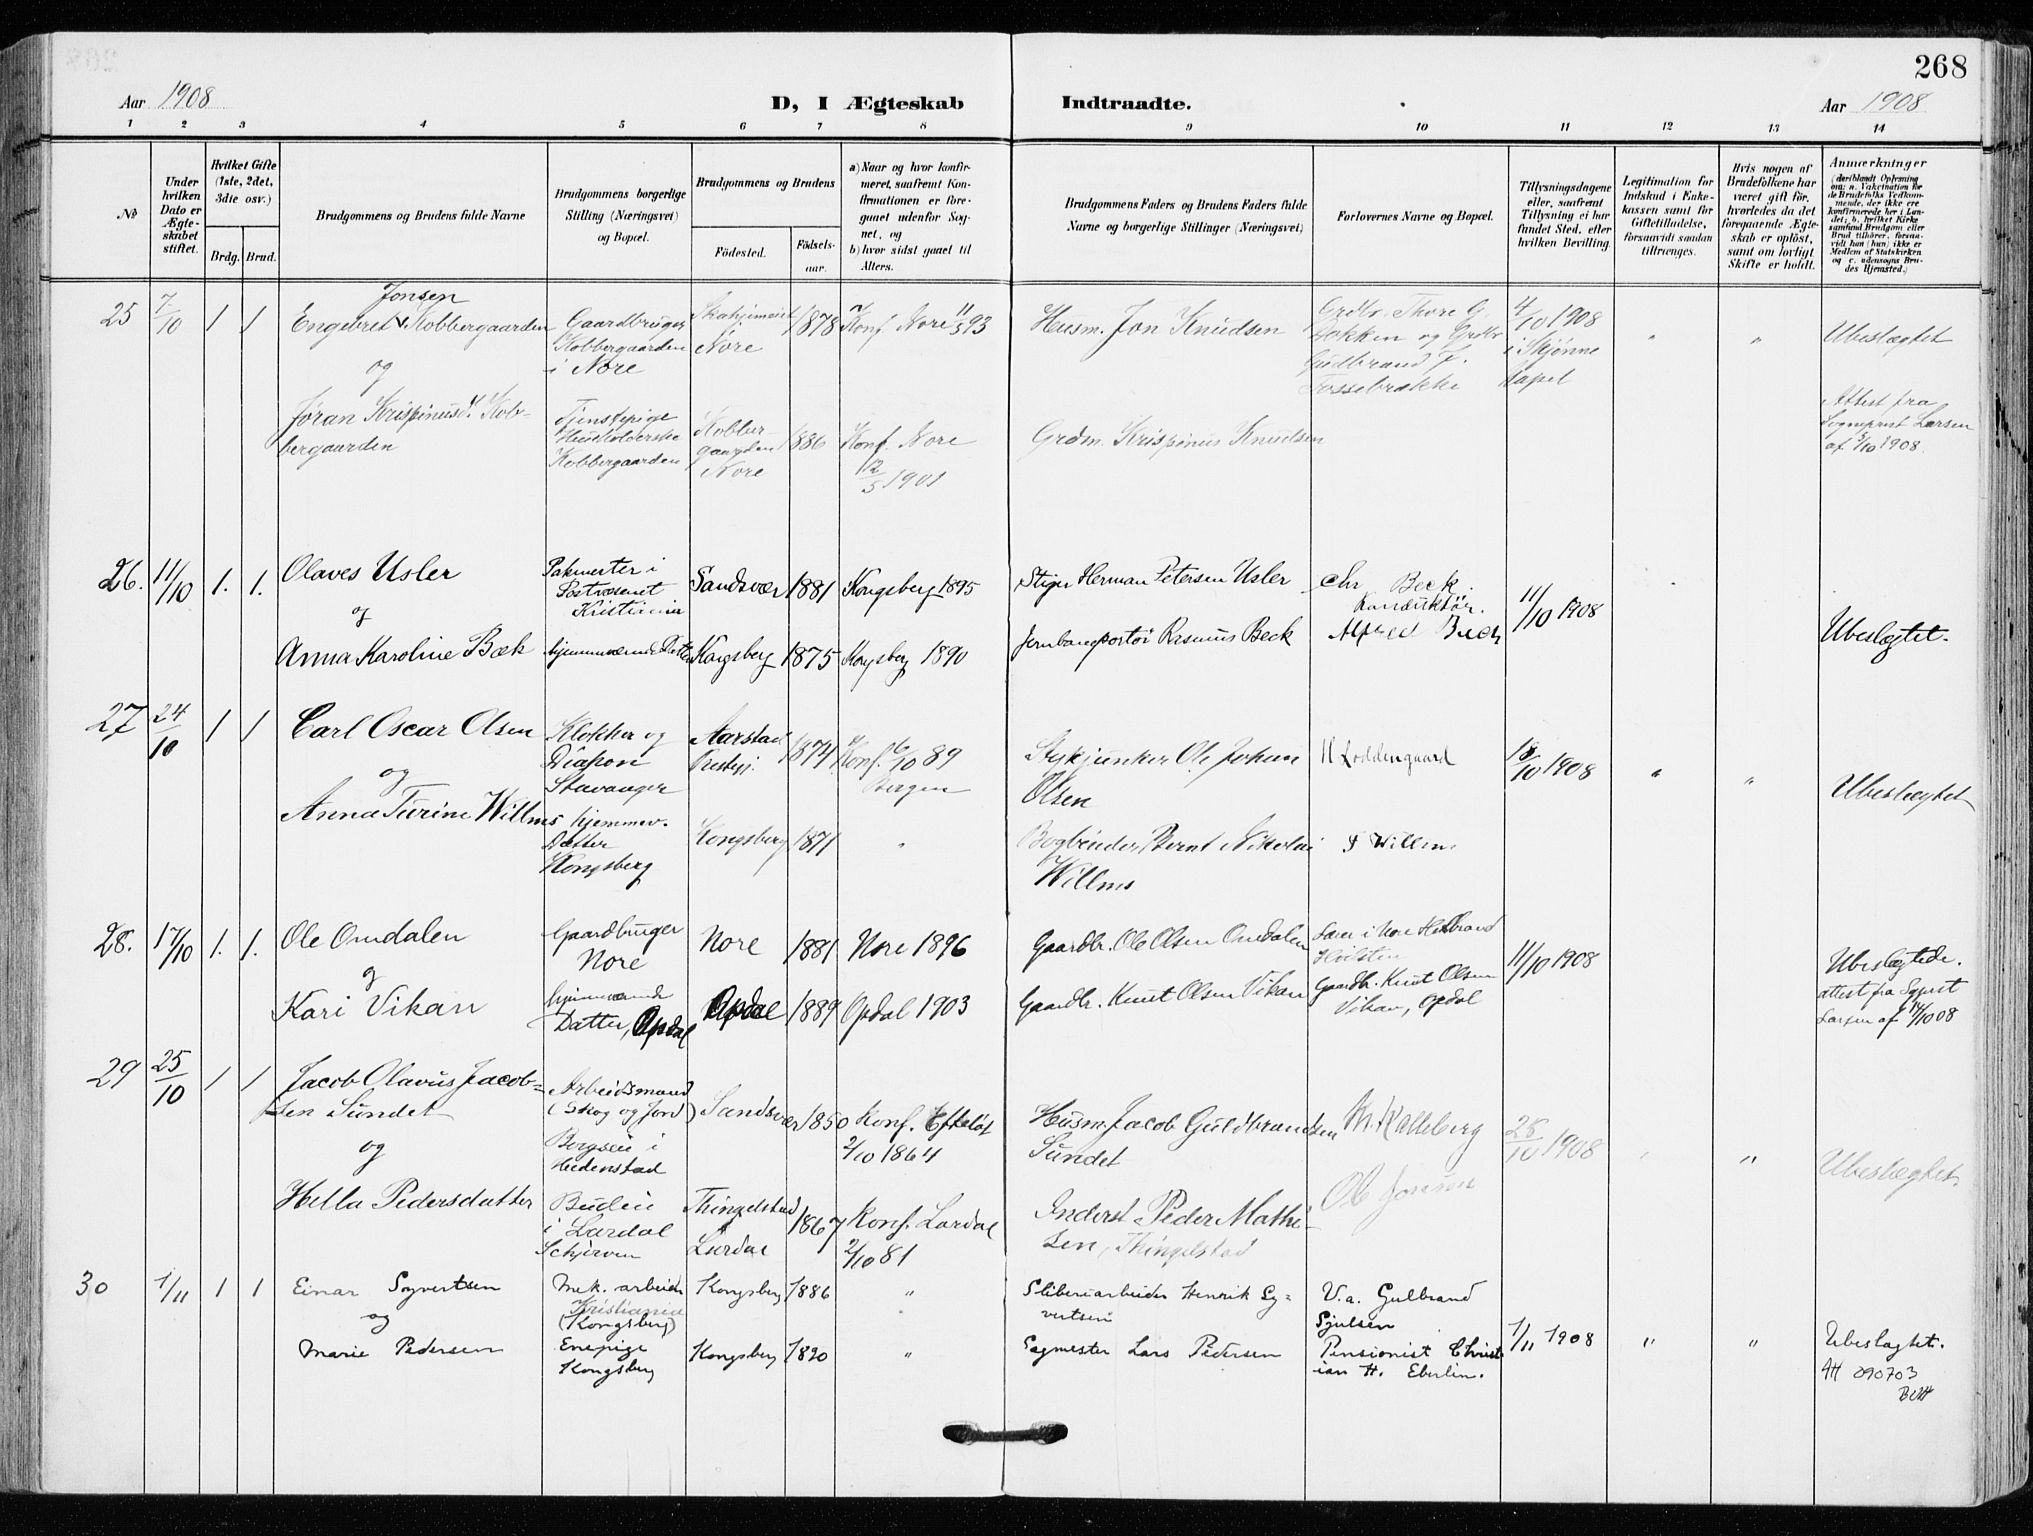 268
Aar 1908
D, I Ægteskab
Indtraadte.
Aar 1908
1 2 3 4 5 6 7 8 9 10 11 12 13 14
No
Under hvilken Dato er Ægteskabet stiftet.
Hvilket Gifte (1ste, 2det, 3die osv.)
Brdg. Brud.
Brudgommens og Brudens fulde Navne
Brudgommens borgerlige Stilling (Næringsvei) og Bopæl.
Brudgommens og Brudens
Födested.
Födsels-aar.
a) Naar og hvor konfirmeret, saafremt Konfirmationen er foregaaet udenfor Sognet, og
b) hvor sidst gaaet til Alters.
Brudgommens Faders og Brudens Faders fulde Navne og borgerlige Stillinger (Næringsvei)
Forlovernes Navne og Bopæl.
Tillysningsdagene eller, saafremt Tillysning ei har fundet Sted, efter hvilken Bevilling.
Legitimation for Indskud i Enkekassen samt for Giftetilladelse, forsaavidt saadan tiltrænges.
Hvis nogen af Brudefolkene har været gift för, hvorledes da det foregaaende Ægteskab er oplöst, samt om lovligt Skifte er holdt.
Anmærkninger
(deriblandt Oplysning om: a. Vakcination for de Brudefolks Vedkommende, der ikke ere konfirmerede her i Landet; b. hvilket Kirkesamfund Brudgom eller Brud tilhörer, forsaavidt han (hun) ikke er Medlem af Statskirken og c. udensogns Brudes Hjemsted.)
25 7/10 1 1
Jonsen
Engebret Kobbergaarden
og
Jøran Krispinusd. Kobbergaarden
Gaardbruger
Kobbergaarden
i Nore
Tjenstepige
Husholderske
Kobbergaarden
i
Nore
1878
Kobbergaarden
Nore
1886
Konf. Nore 11/5 93
Konf. Nore
12/5 1901
Husm. Jon Knudsen
Grdm. Krispinus Knudsen
Grdbr. Thore G.
Løkken og Grdbr
Gudbrand J.
Fossebrække
4/10 1908
i Skjønne
Kapel
" "
Ubeslægtet
Attest fra
Sogneprest Larsen
af 5/10 1908.
26. 11/10 1. 1.
Olaves Usler
og
Anna Karoline Bæk
Pakmester i
Postvæsenet
Kristiania
hjemmeværende Datter
Sandsvær 1881 Kongsberg 1895
Kongsberg 1875 Kongsberg 1890
Stiger Herman Petersen Usler
Jernbaneportör Rasmus Beck
Chr Beck.
Konduktör.
Alfred Beck
11/10 1908
Ubeslegtet.
27 24/10 1 1
Carl Oscar Olsen
og
Anna Turine Willms
Klokker og
Diakon
Stavanger
hjemmev.
Datter
Kongsberg
Aarstad
Prestegj.
1874
Konf. 6/10 89
Bergen
Kongsberg 1871 "
Stykjunker Ole Johan
Olsen
Bogbinder Bernt Nikolai
Willms
H Loddengaard
F Willms
18/10 1908
" "
Ubeslægtet
28. 17/10 1. 1.
Ole Omdalen
og
Kari Vikan
Gaardbruger
Nore
hjemmeværende
Datter, Opdal
Nore 1881 Nore 1896
Opdal 1889 Opdal 1903
Gaardbr. Ole Olsen Omdalen
Gaardbr. Knut Olsen Vikan
Gaardbr. Knut Olsen
Vikan, Opdal
11/10 1908
Ubeslegtede.
attest fra Sgprst
Larsen af 14/10 08
29 25/10 1 1
Jacob Olavus Jacobsen Sundet
og
Hella Pedersdatter
Arbeidsmand
(Skog og Jord)
i
Hedenstad
Budeie
i Lardal
Schjerven
Sandsvær 1850
Konf. Efteløt
2/10 1864
Thingelstad
i
Lardal
1867
Konf. Lardal
2/10 81
Husm. Jacob Guldbrandsen
Sundet
Inderst Peder Mathisen, Thingelstad
M. Kalleberg
Ole Jonsen
25/10 1908
" "
Ubeslægtet.
30 1/11 1 1
Einar Sygvertsen
og
Marie Pedersen
Mek. arbeider
Kristiania
(Kongsberg)
Enepige
Kongsberg
Kongsberg 1886 "
Kongsberg 1890 "
Sliberiarbeider Henrik Sygvertsen
Sagmester Lars Pedersen
V.a. Gulbrand
Sjulsen
Pensionist Christian H. Eberlin.
1/11 1908
" "
Ubeslægtet.
AH 090703
BUH